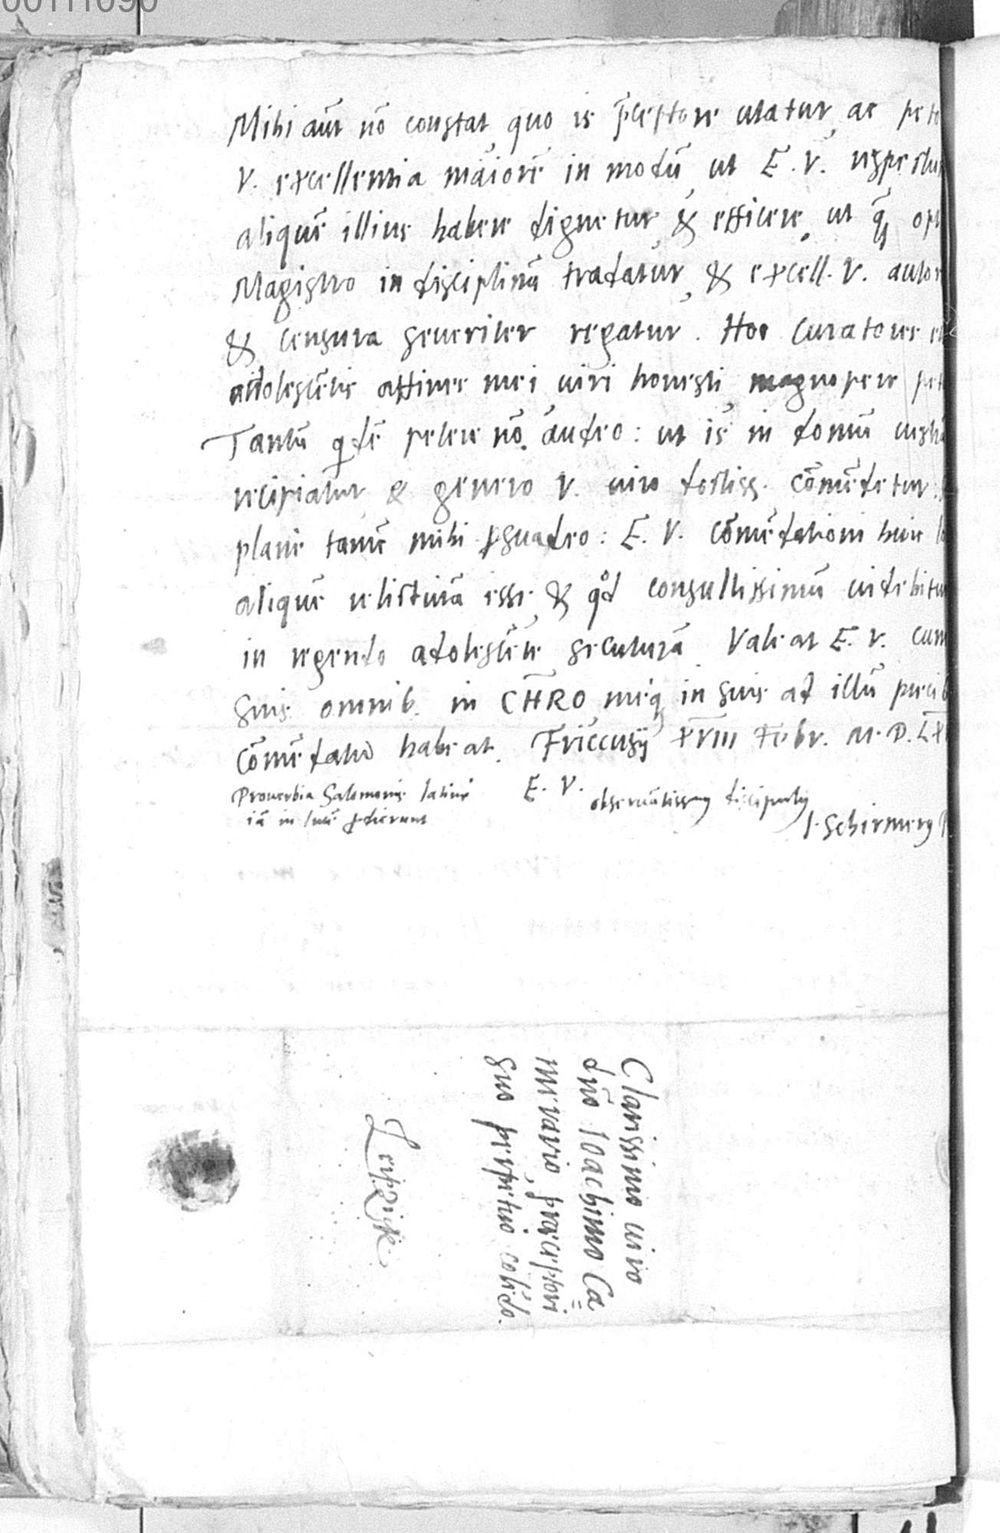 00111090
Mihi aūt nō constat quo is p̄ceptore utatur, ac peto
V. excellentia maiorē in modū ut E. V. respectū
aliquē illius habere dignetur & efficere, ut q̄
Magistro in disciplinā tradatur, & excell. V. autor
& censura seueriter regatur. Hoc curatores
adolescētis affines mei uiri honesti magnopere pet
Tantū q̄dē petere nō audeo: ut is in domū
recipiatur & genero V. uiro doctiss. cōmēdetur.
plane tamē mihi ꝑsuadeo: E. V. cōmēdationi huic
aliquē relicturā esse & qd consultissimū uidebitur
in regendo adolescēte secuturā. Valeat E. V. cum
suis omnib. in CHR̄O meq̄ in suis ad illū precib
cōmēdatū habeat. Friccusij XVIII Febr. M. D. LX
Prouerbia Salomonis latine
iā in lucē ꝓdierunt
E. V. obseruātissimꝰ discipulꝰ
I. Schirmerꝰ
Clarissimo uiro
dn̄o Ioachimo Ca=
merario, præceptori
suo perpetuo colēdo.
Leipzigk